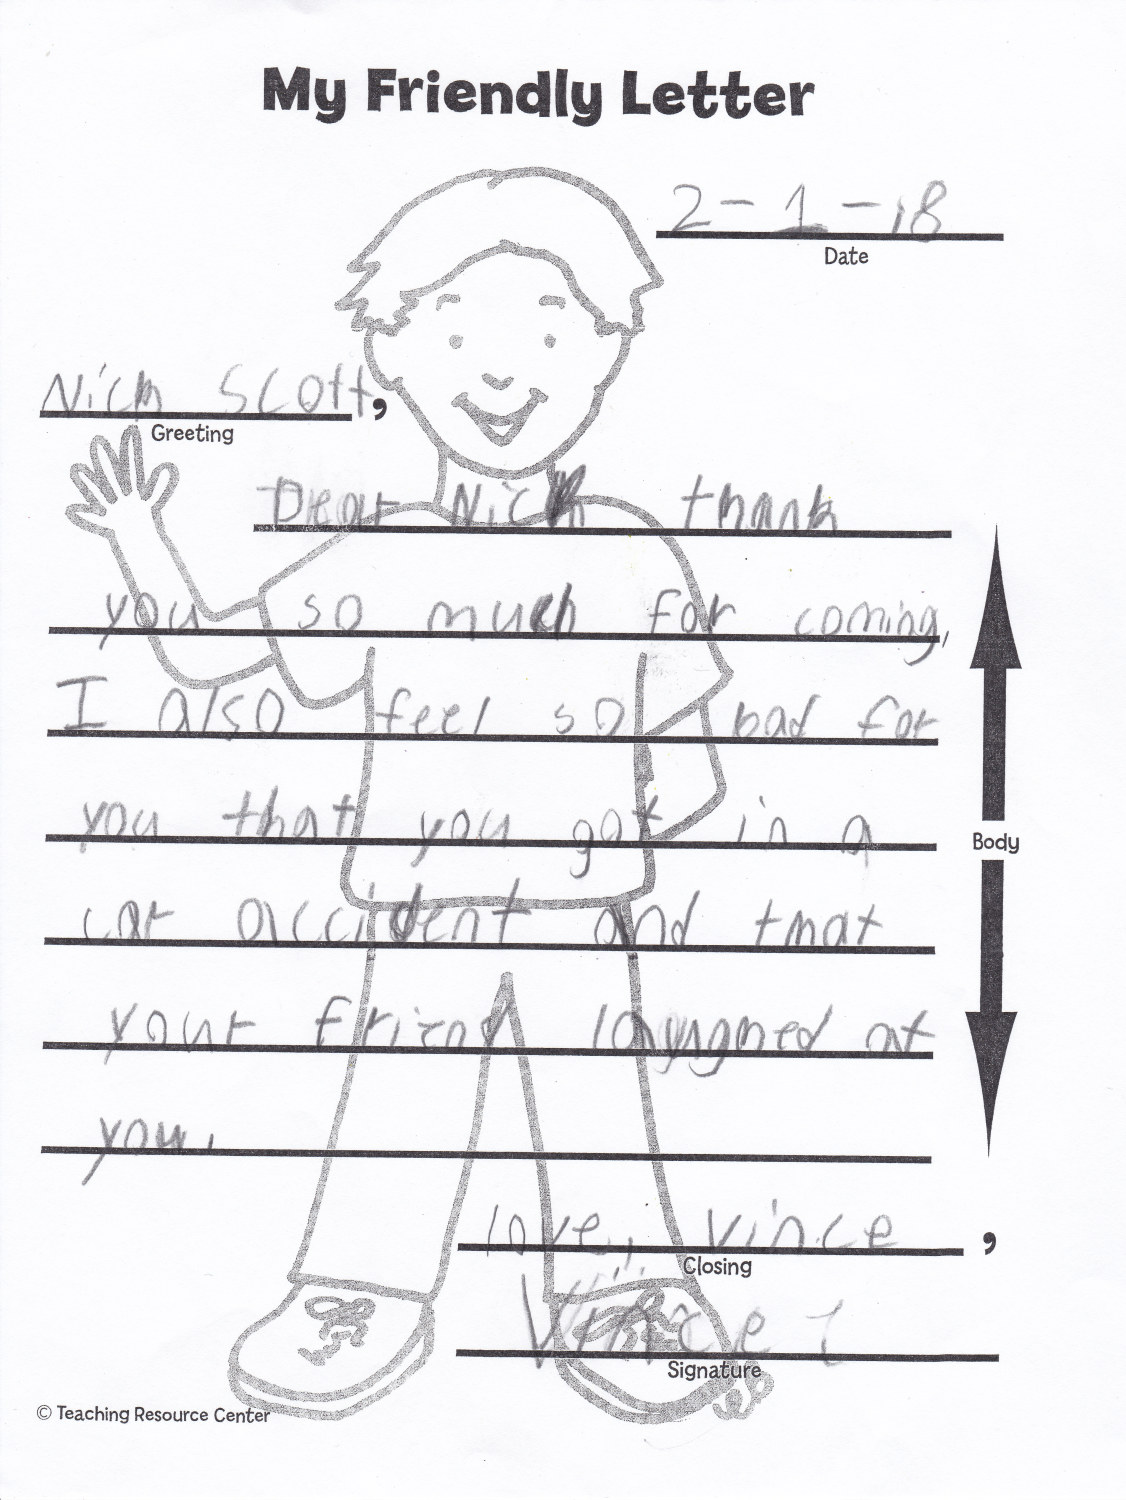 My Friendly Letter
2-1-18
Date
Nick Scott,
Greeting
Dear Nick thank
you so much for coming,
I also feel so bad for
you that you got in a
car accident and that
your friend at
you.
Body
love, Vince,
Closing
Vince
Signature
© Teaching Resource Center